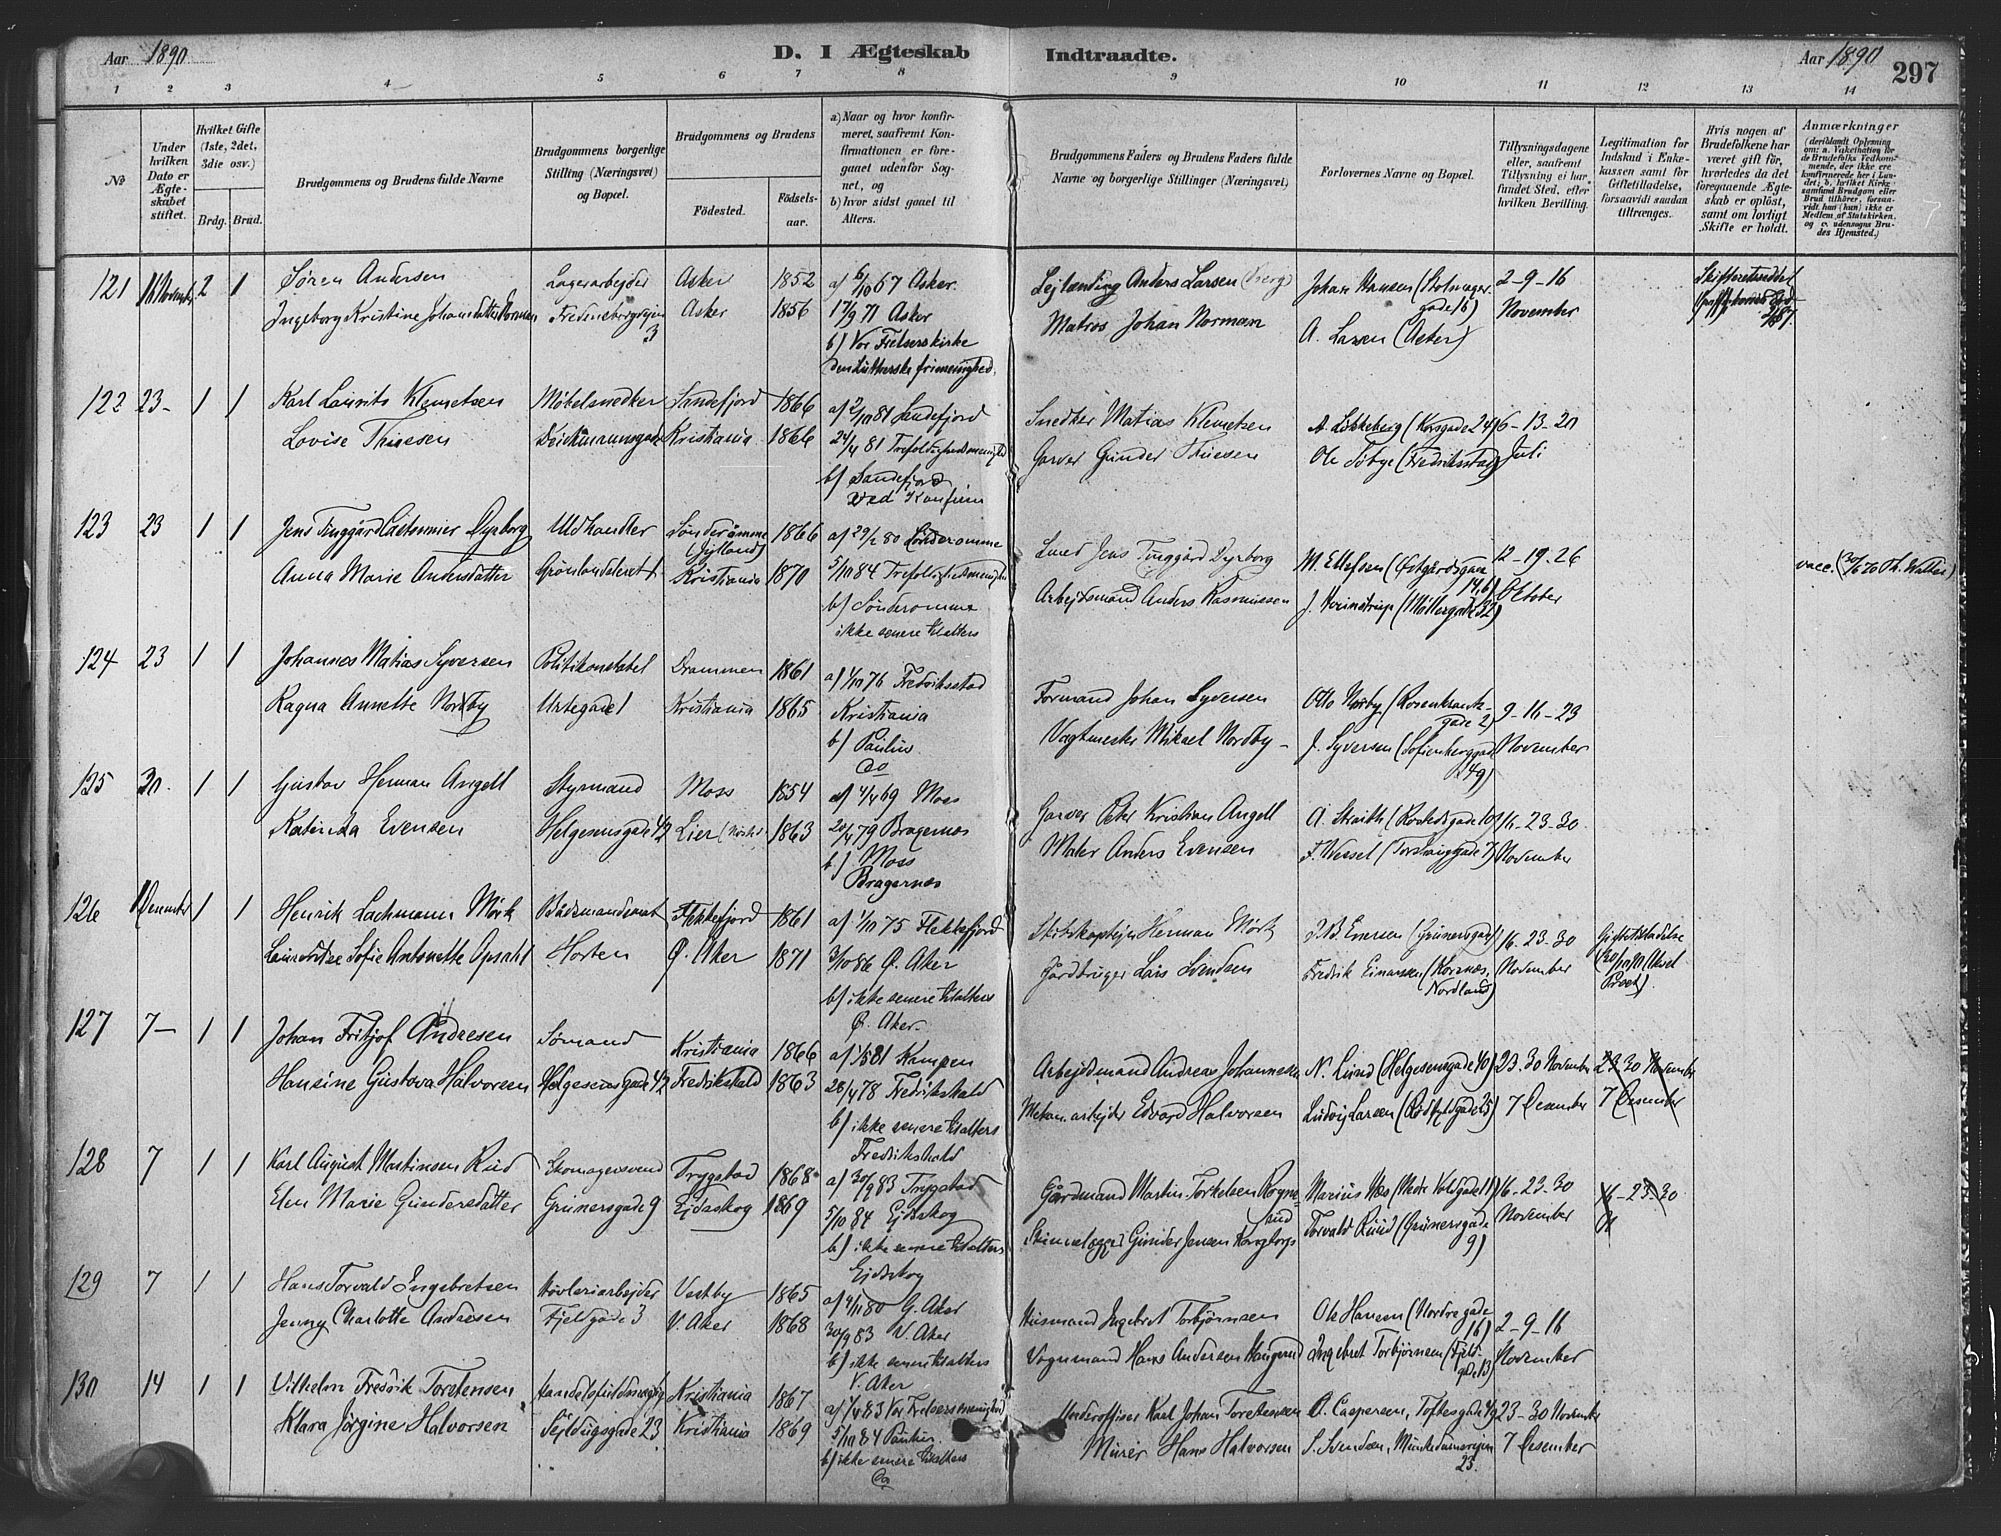 Aar 1890
D. I Ægteskab Indtraadte.
Aar 1890
297
1 2 3 4 5 6 7 8 9 10 11 12 13 14
No
Under hvilken Dato er Ægteskabet stiftet.
Hvilket Gifte (1ste, 2det, 3die osv.)
Brdg. Brud.
Brudgommens og Brudens fulde Navne
Brudgommens borgerlige Stilling (Næringsvei) og Bopæl.
Brudgommens og Brudens
Fødested.
Fødselsaar.
a) Naar og hvor konfirmeret, saafremt Konfirmationen er foregaaet udenfor Sognet, og
b) hvor sidst gaaet til Alters.
Brudgommens Faders og Brudens Faders fulde Navne og borgerlige Stillinger (Næringsvei)
Forlovernes Navne og Bopæl.
Tillysningsdagene eller, saafremt Tillysning ei har fundet Sted, efter hvilken Bevilling.
Legitimation for Indskud i Enkekassen samt for Giftetilladelse, forsaavidt saadan tiltrænges.
Hvis nogen af Brudefolkene har været gift før, hvorledes da det foregaaende Ægteskab er opløst, samt om lovligt Skifte er holdt.
Anmærkninger
(deriblandt Oplysning om: a. Vakcination for de Brudefolks Vedkommende, der ikke ere konfirmerede her i Landet; b. hvilket Kirkesamfund Brudgom eller Brud tilhører, forsaavidt han (hun) ikke er Medlem af Statskirken, og c. udensogns Brudes Hjemsted.)
121 16 November 2 1 Søren Andersen Lagerarbejder Asker 1852 a) 6/10 67 Asker. Lejlænding Anders Larsen Johan Hansen (Holmens gade 16) 2-9-16
Ingeborg Kristine Johansdatter Norman Fredensborgvejen 3 Asker 1856 17/9 71 Asker Matros Johan Norman A. Larsen (Asker) November
b) Vor Frelsers kirke
den Lutherske frimenighed.
122 23- 1 1 Karl Laurits Klemetsen Møbelsnedker Sandefjord 1866 a) 2/10 81 Sandefjord Snedker Matias Klemetsen A. Løkkeberg (Korsgade 24) 6-13-20
Lovise Thuesen Deichmannsgade Kristiania 1866 24/4 81 Trefoldighedsmenighed Garver Gunder Thuesen Ole Tobye (Fredriksstad) Juli
b) Sandefjord
ved Konfirm
123 23 1 1 Jens Tinggård Dyrborg Uldhandler Sønderomme (Jylland) 1866 a) 29/2 80 Sønderomme Smed Jens Tinggård Dyrborg M. Ellefsen (Østgårdsgaa 14, b) 12-19-26
Anna Marie Andersdatter Grønlandsleret Kristiania 1870 5/10 84 Trefoldighedsmenighed Arbejdsmand Anders Rasmussen J. (Møllergade 32) Oktober vacc.
b) Sønderomme
ikke senere til alters
124 23 1 1 Johannes Matias Syversen Politikonstabel Drammen 1861 a) 1/10 76 Fredriksstad Formand Johan Syversen Otto Norby (Rosenkrantzgade 2) 9-16-23
Ragna Annette Nordby Urtegade 1 Kristiania 1865 Kristiania Vagtmester Mikael Nordby- J. Syversen (Sofienberggade 49) November
b) Paulus
do
125 30. 1 1 Gustav Herman Angell Styrmand Moss 1854 a) 4/4 69 Moss Garver Peter Kristian Angell A. Straith (Rostedsgade 10) 16-23-30
Katinka Evensen Helgesensgade 42 Lier 1863 20/4 79 Bragernæs Maler Anders Evensen F. Wessel (Torstvedtgade 7) November
b) Moss
Bragernæs
126 1 December 1 1 Henrik Lachmann Mörk Bådsmandsmat Flekkefjord 1861 a) 1/10 75 Flekkefjord Skibskaptejn Herman Mörk J. B. Evensen (Grünersgade) 16-23-30 Giftetilladelse
Sofie Antonette Opsahl Horten Ø. Aker 1871 3/10 86 Ø. Aker Gårdbruger Lars Svendsen Fredrik Einarsen (Korsnæs, Nordland) November
b) ikke senere til alters
Ø. Aker.
127 7- 1 1 Johan Fritjof Andresen Sømand Kristiania 1866 a) 1/5 81 Kampen Arbejdsmand Andreas Johannesen N. Lund (Helgesensgade 40) 23. 30 November 23 30 November
Hansine Gustava Halvorsen Helgesensgade 42 Fredrikshald 1863 28/4 78 Fredrikshald Mekan. arbejder Edvard Halvorsen Ludvig Larsen (Rödfyldgade 25) 7 Desember 7 Desember
b) ikke senere til alters
Fredrikshald
128 7 1 1 Karl August Martinsen Rud Skomagersvend Trygstad 1868 a) 30/9 83 Trygstad Gårdmand Martin Torkelsen Rognerud Marius Næs (Nedre Voldgade 11) 16-23-30 16-23-30
Elen Marie Gundersdatter Grünersgade 9 Ejdsskog 1869 5/10 84 Ejdsskog Gunder Jensen Torvald Ruud (Grünersgade 9) November
b) ikke senere til alters
Ejdsskog
129 7 1 1 Hans Torvald Ingebretsen Høvleriarbejder Vestby 1865 a) 4/11 80 G. Aker Husmand Ingebret Torbjørnsen Ole Hansen (Nordre gade 16) 2-9-16
Jenny Charlotte Andresen Fjeldgade 3 V. Aker 1868 30/9 83 V. Aker Vognmand Hans Andersen Haugerud Ingebret Torbjørnsen (Fjeldgade 13) November
b) ikke senere til alters
V. Aker
130 14 1 1 Vilhelm Fredrik Torstensen Handelsfuldmægtig Kristiania 1867 a) 1/4 83 Vor Frelsers menighed Underofficer Karl Johan Torstensen O. Caspersen, Toftesgade 49 23-30 November
Klara Jörgine Halvorsen Sejldugsgade 23 Kristiania 1869 5/10 84 Paulus Murer Hans Halvorsen S. Svendsen, Munkedamsvejen 23. 7 Desember
b) ikke senere til alters
do